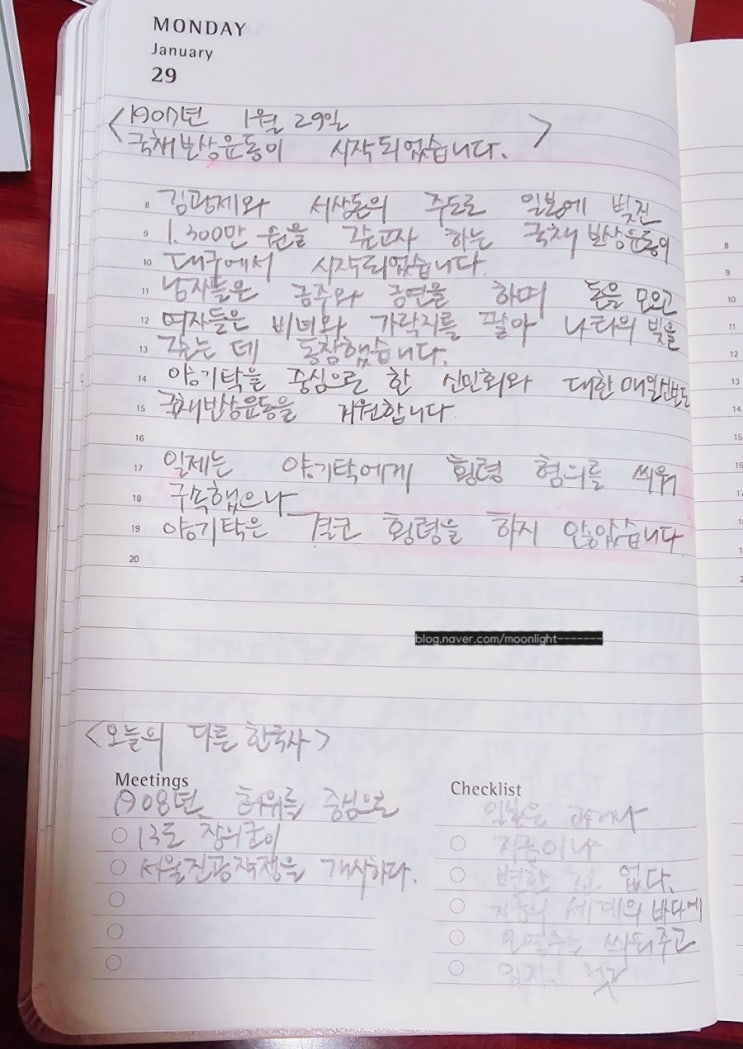 MONDAY
January
29
<1907년 1월 29일
국채보상운동이 시작되었습니다. >
8 김광제와 서상돈의 주도로 일본에 빚진
9 1,300만 원을 갚고자 하는 국채보상운동이
10 대구에서 시작되었습니다.
11 남자들은 금주와 금연을 하며 돈을 모으고
12 여자들은 비녀와 가락지를 팔아 나라의 빚을
13 갚는 데 동참했습니다.
14 양기탁을 중심으로 한 신민회와 대한매일신보도
15 국채보상운동을 지원합니다.
16
17 일제는 양기탁에게 횡령 혐의를 씌워
18 구속했으나
19 양기탁은 결코 횡령을 하지 않았습니다
20
blog.naver.com/moonlight-------
<오늘의 다른 한국사>
Meetings
1908년, 허위를 중심으로
13도 창의군이
서울진공작전을 개시하다.
Checklist
일본은
지금이나
변한 없다.
세계의 바다에
주고
8
9
10
11
12
13
14
15
16
17
18
19
20